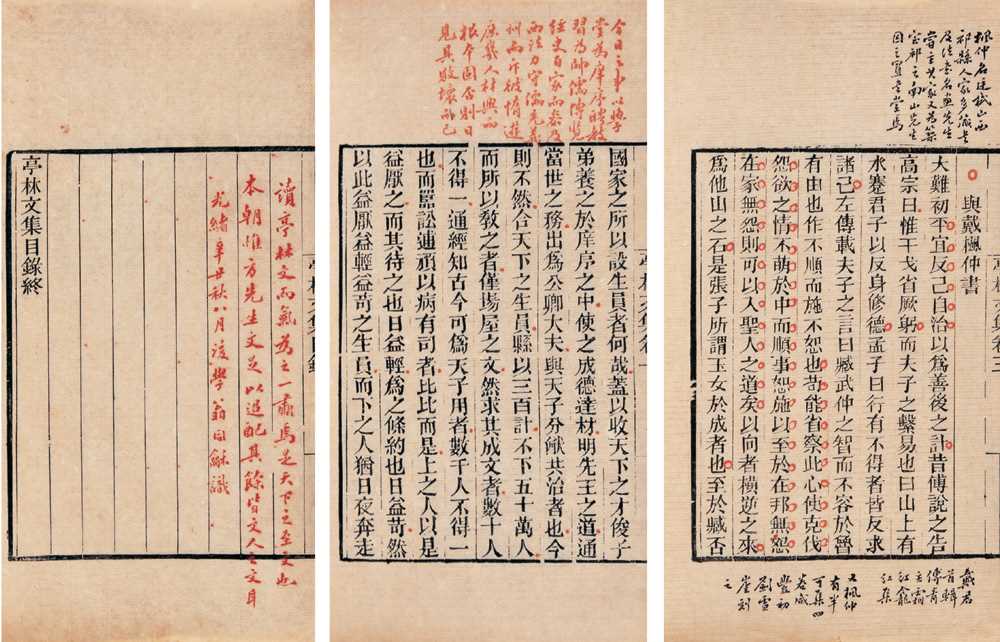 讀亭林文而氣為之一肅焉是天下之至文也
本朝惟方先生文足以追配其餘皆文人之文耳
光緒辛丑秋八月後學翁同龢識
亭林文集目錄終
今日之事以學
堂為庠序聘教
習為師儒博覽
經史百家而參及
西法力守儒先義
訓而斥彼惰遊
庶幾人材興而
根本固否則日
見其敗壞而已
國家之所以設生員者何哉蓋以收天下之才俊子
弟養之於庠序之中使之成德達材明先王之道通
當世之務出爲公卿大夫與天子分猷共治者也今
則不然合天下之生員縣以三百計不下五十萬人
而所以教之者僅場屋之文然求其成文者數十人
不得一通經知古今可爲天子用者數千人不得一
也而囂訟逋頑以病有司者比比而是上之人以是
益厭之而其待之也日益輕爲之條約也日益苛然
以此益厭益輕益苛之生員而下之人猶日夜奔走
楓仲名廷栻山西
祁縣人家多藏書
及法書名畫先生
嘗主其家又為築
室祁之南山先生
因之置書堂焉
與戴楓仲書
大難初平宜反己自治以爲善後之計昔傅說之告
高宗曰惟干戈省厥躬而夫子之繫易也曰山上有
水蹇君子以反身修德孟子曰行有不得者皆反求
諸己左傳載夫子之言曰臧武仲之智而不容於魯
有由也作不順而施不恕也苟能省察此心使克伐
怨欲之情不萌於中而順事恕施以至於在邦無怨
在家無怨則可以入聖人之道矣以向者橫逆之來
爲他山之石是張子所謂玉女於成者也至於臧否
戴君
曾輯
傅青
主霜
紅龕
集
又楓仲
有半
可集四
卷咸
豐初
劉雪
崖刻
之